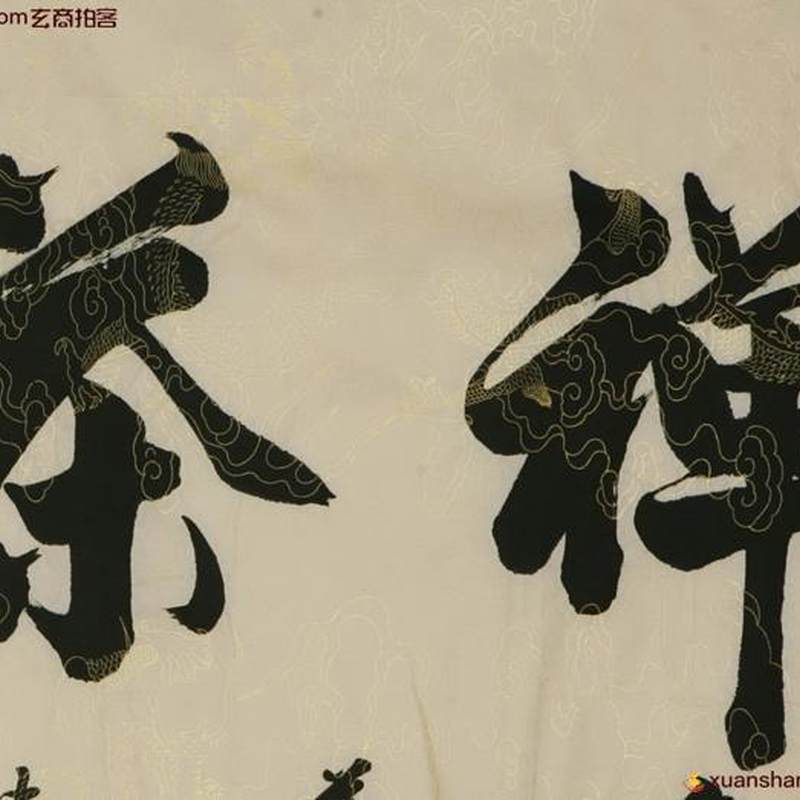 om玄商拍客
禅茶
xuanshan